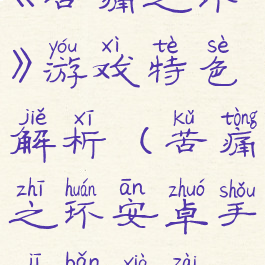 》yóu xì tè sè
游戏特色
jiě xī kǔ tòng
解析（苦痛
zhī huán ān zhuó shǒu
之环安卓手